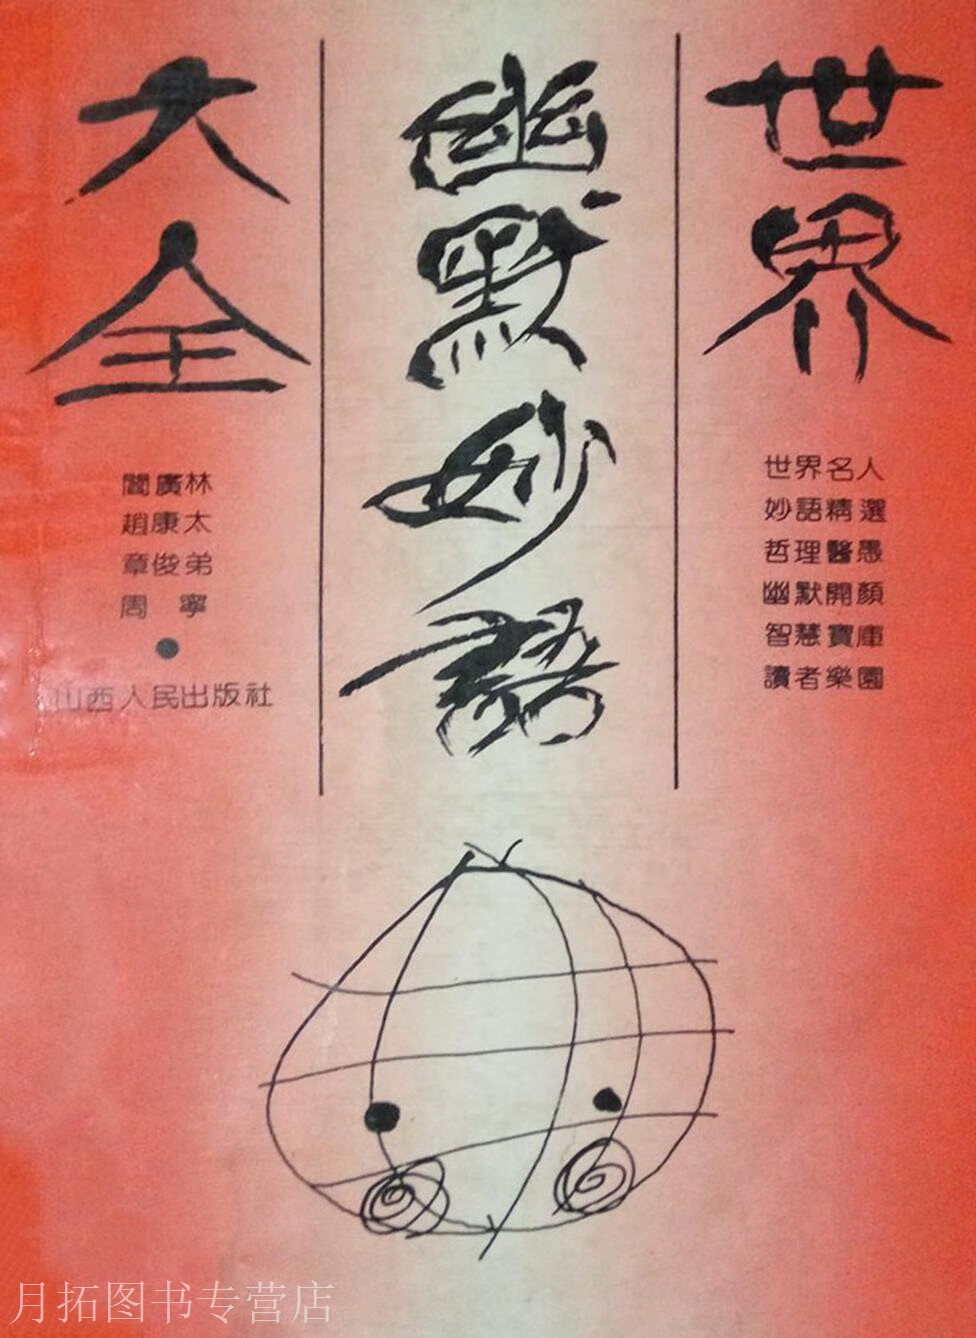 世界
幽默妙語
大全
世界名人
妙語精選
哲理醫愚
幽默開顏
智慧寶庫
讀者樂園
閻廣林
趙康太
章俊弟
周寧
山西人民出版社
月拓图书专营店